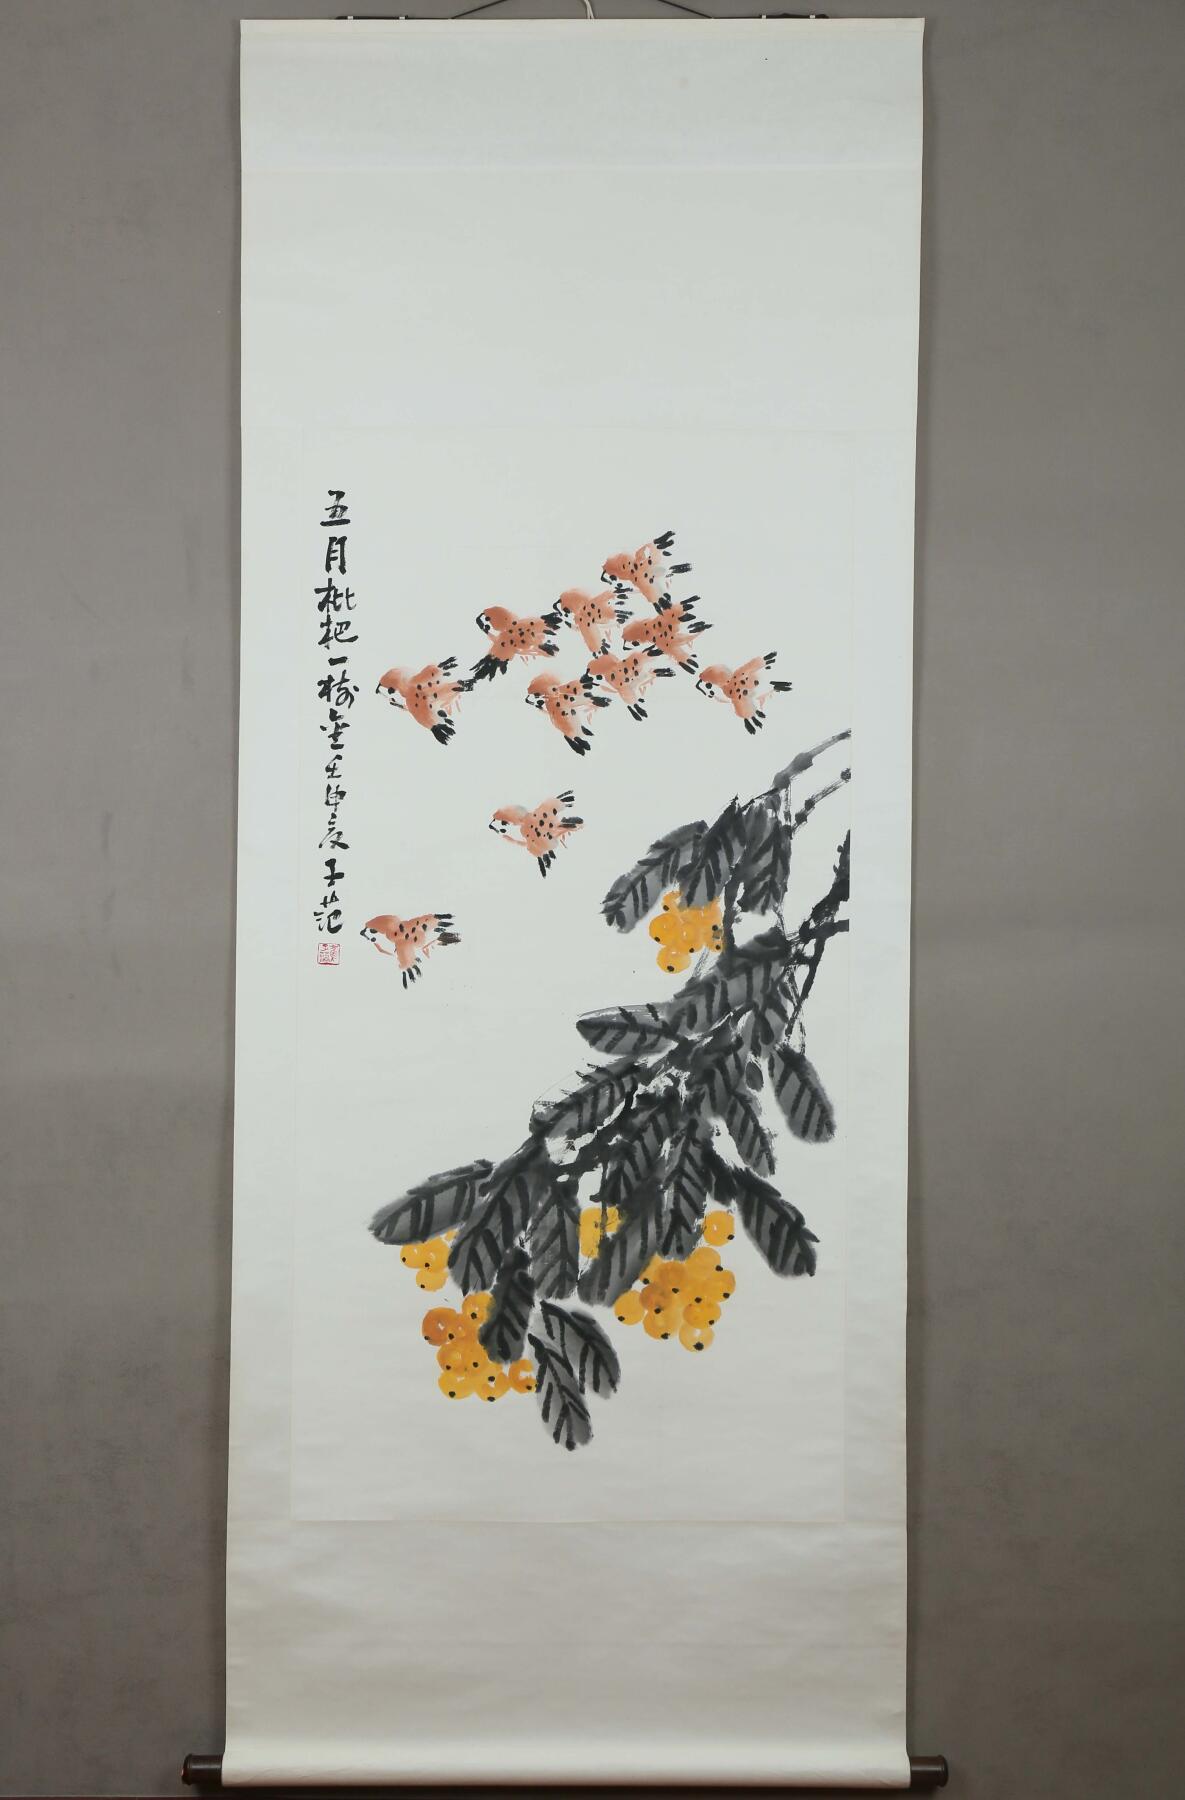 五月枇杷一樹金壬申夏子范